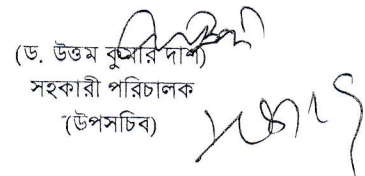 (ড. উত্তম কুমার দাশ)
সহকারী পরিচালক
(উপসচিব)